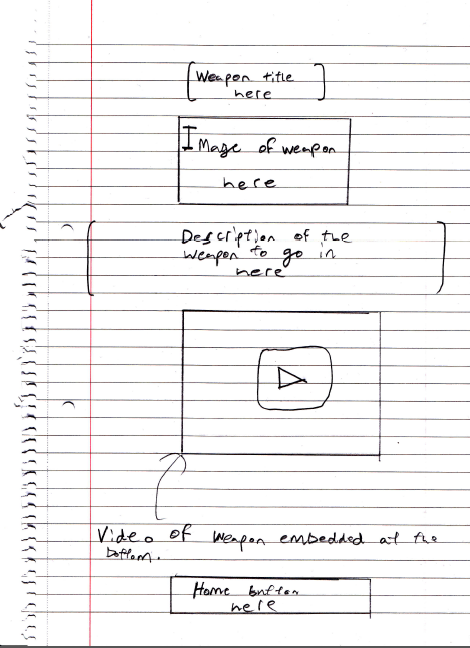 Weapon title
here
Image of weapon
here
Description of the
weapon to go in
here
Video of weapon embedded at the
bottom.
Home button
here